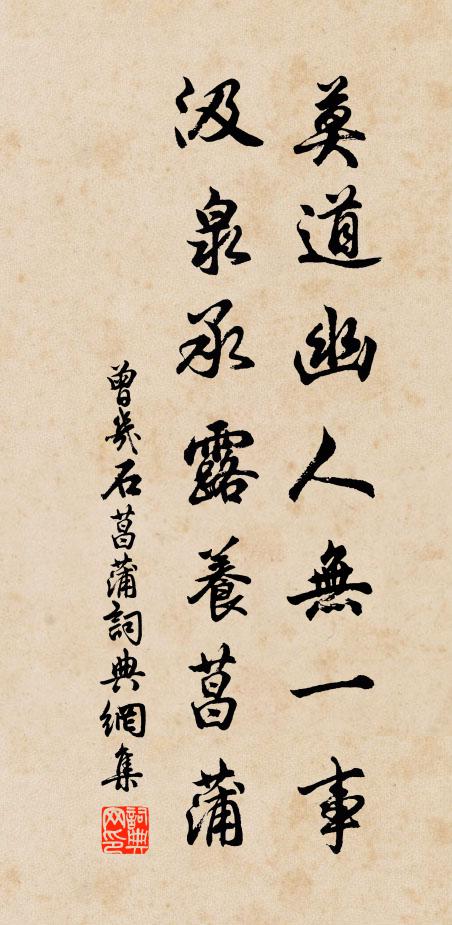 莫道幽人無一事
汲泉承露養菖蒲
曾幾石菖蒲詞典網集
詞典網印